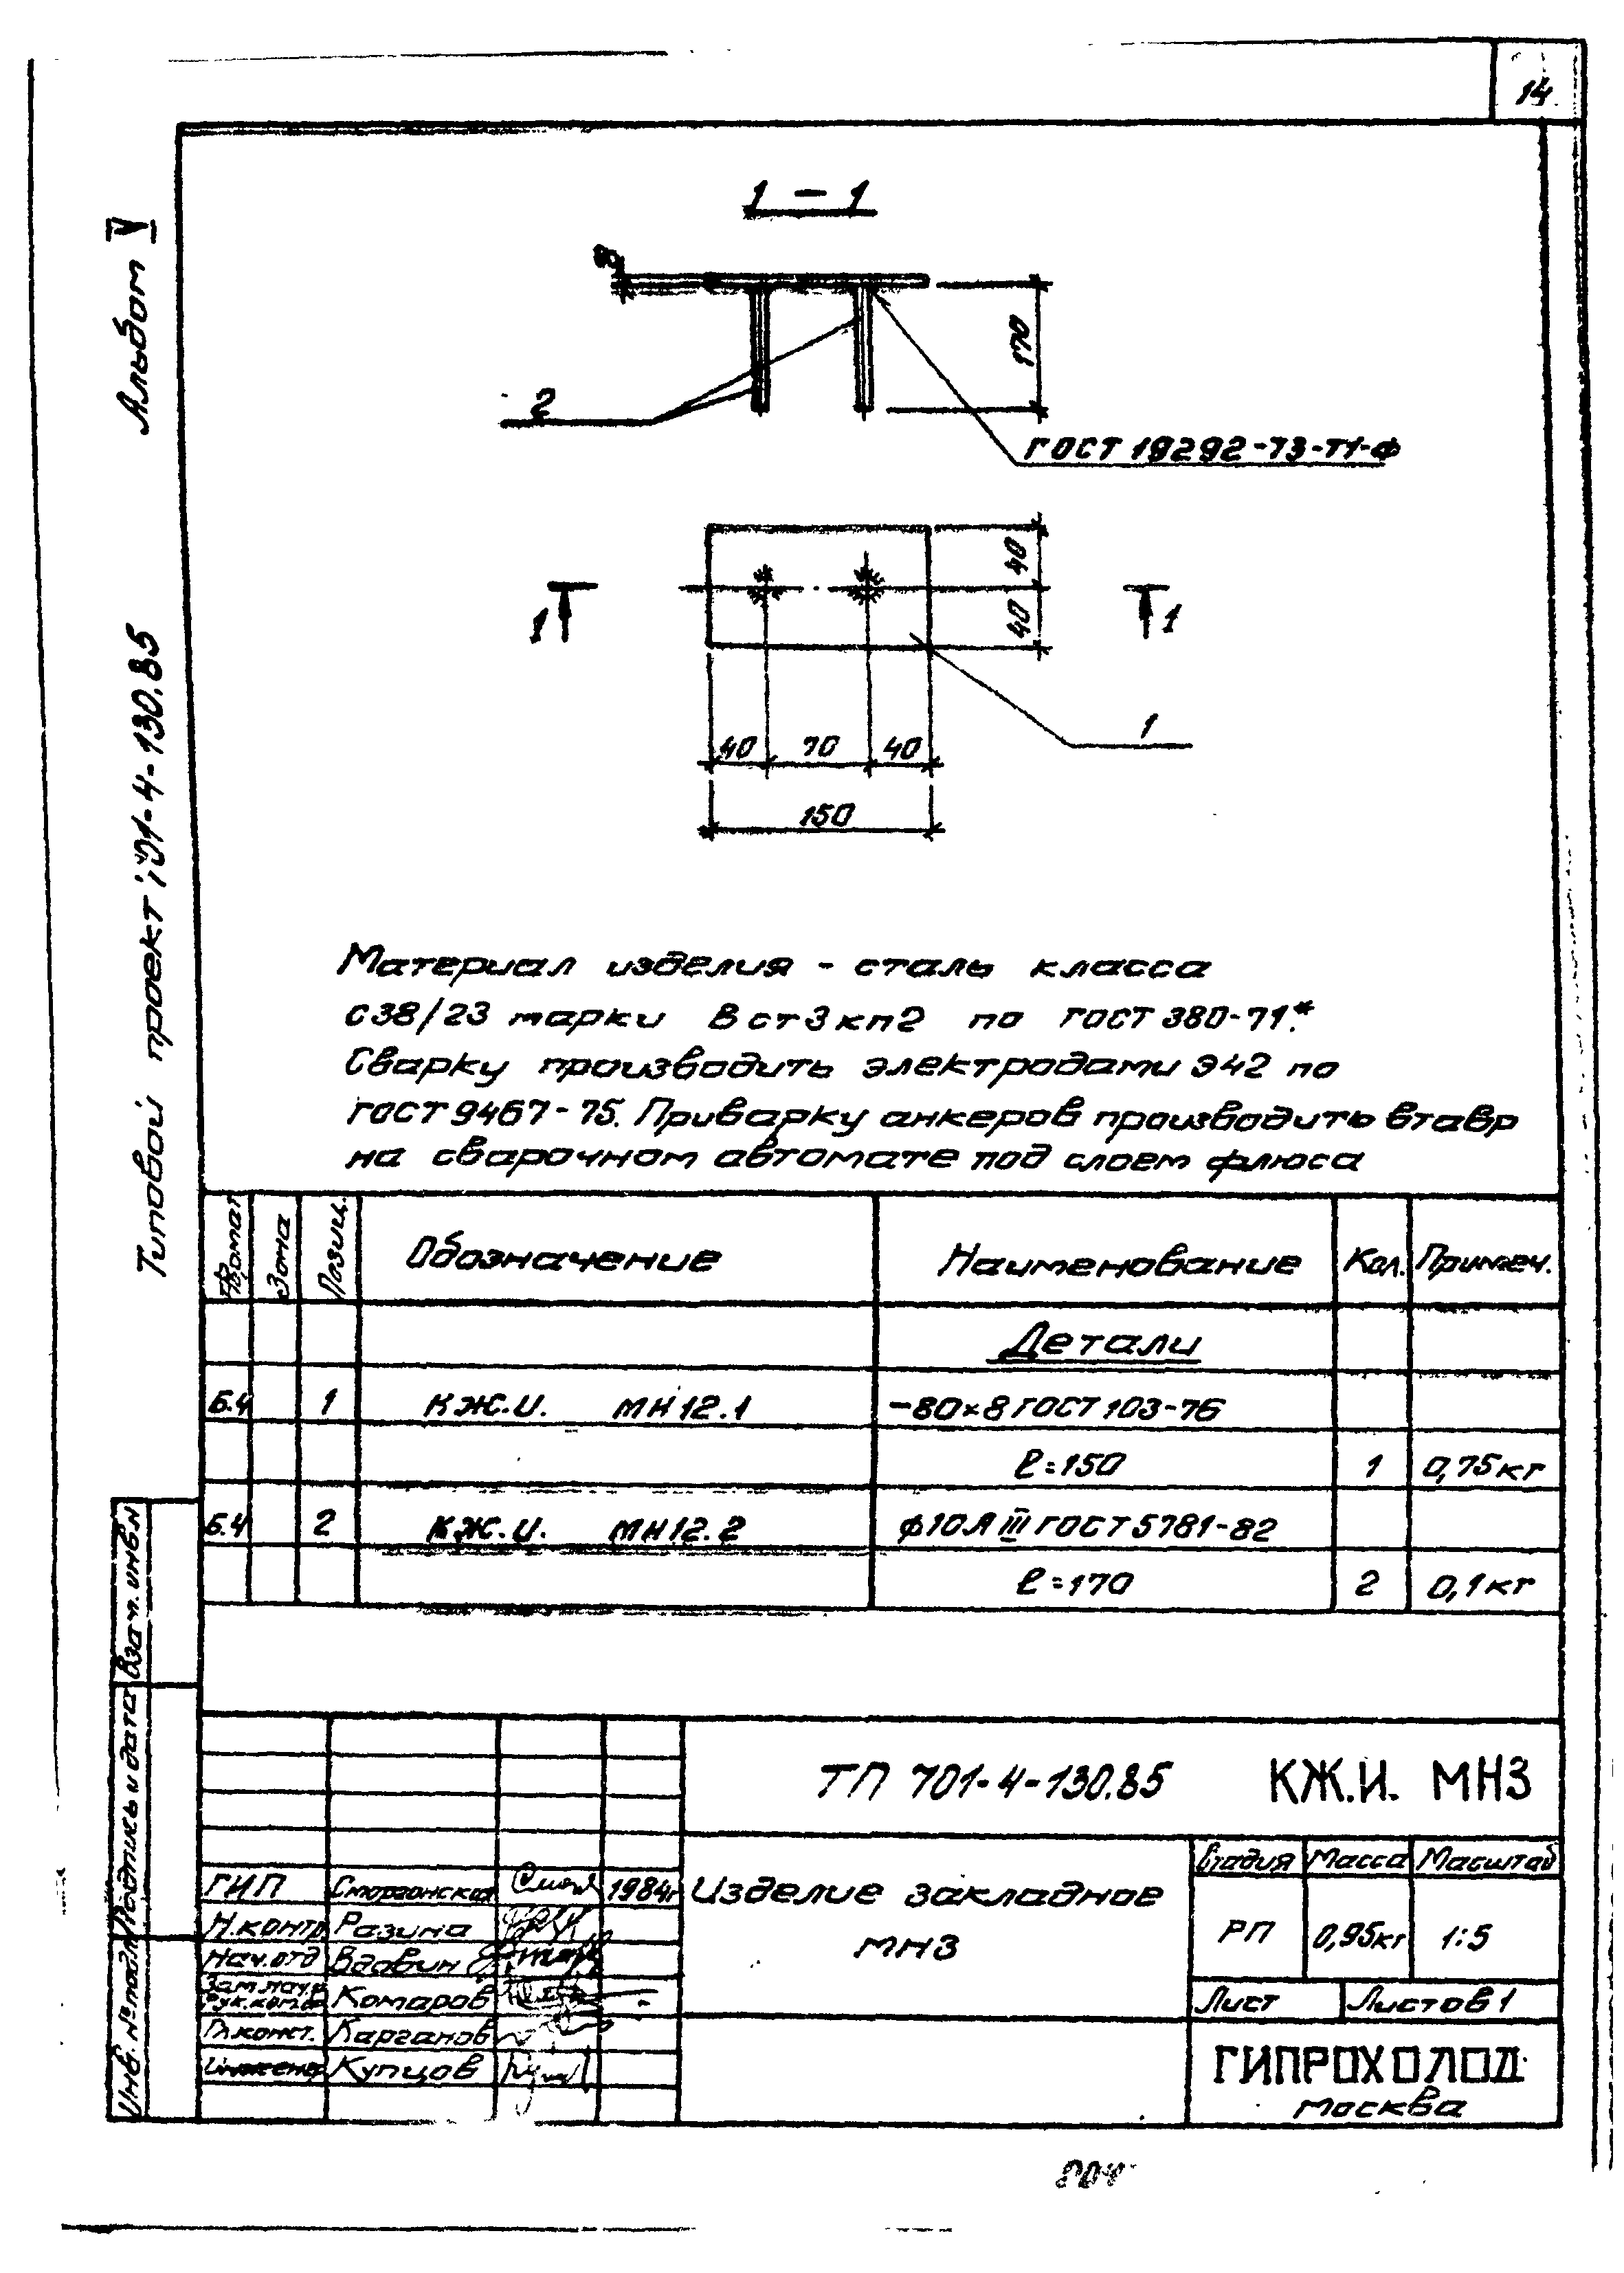 14
Альбом V
Типовой проект 701-4-130.85
1 – 1
8
170
2
ГОСТ 19292-73-Т1-Ф
40
40
1
1
1
40 70 40
150
Материал изделия - сталь класса
С38/23 марки Вст3кп2 по ГОСТ 380-71*.
Сварку производить электродами Э42 по
ГОСТ 9467-75. Приварку анкеров производить втавр
на сварочном автомате под слоем флюса
Формат Зона Позиц. Обозначение Наименование Кол. Примеч.
Детали
Б.4 1 КЖ.И. МН12.1 -80×8 ГОСТ 103-76
ℓ=150 1 0,75кг
Б.4 2 КЖ.И. МН12.2 ф10АIII ГОСТ 5781-82
ℓ=170 2 0,1кг
Взам. инв.N
Подпись и дата
Инв. № подл.
ТП 701-4-130.85 КЖ.И. МН3
Стадия Масса Масштаб
ГИП Сморгонская 1984г
Изделие закладное
МН3
РП 0,95кг 1:5
Н.контр. Разина
Нач.отд Вдовин
Зам.нач.и
Рук.ком.
Комаров
Лист Листов 1
Гл.конст. Карганов
Инженер Купцов
ГИПРОХОЛОД
Москва